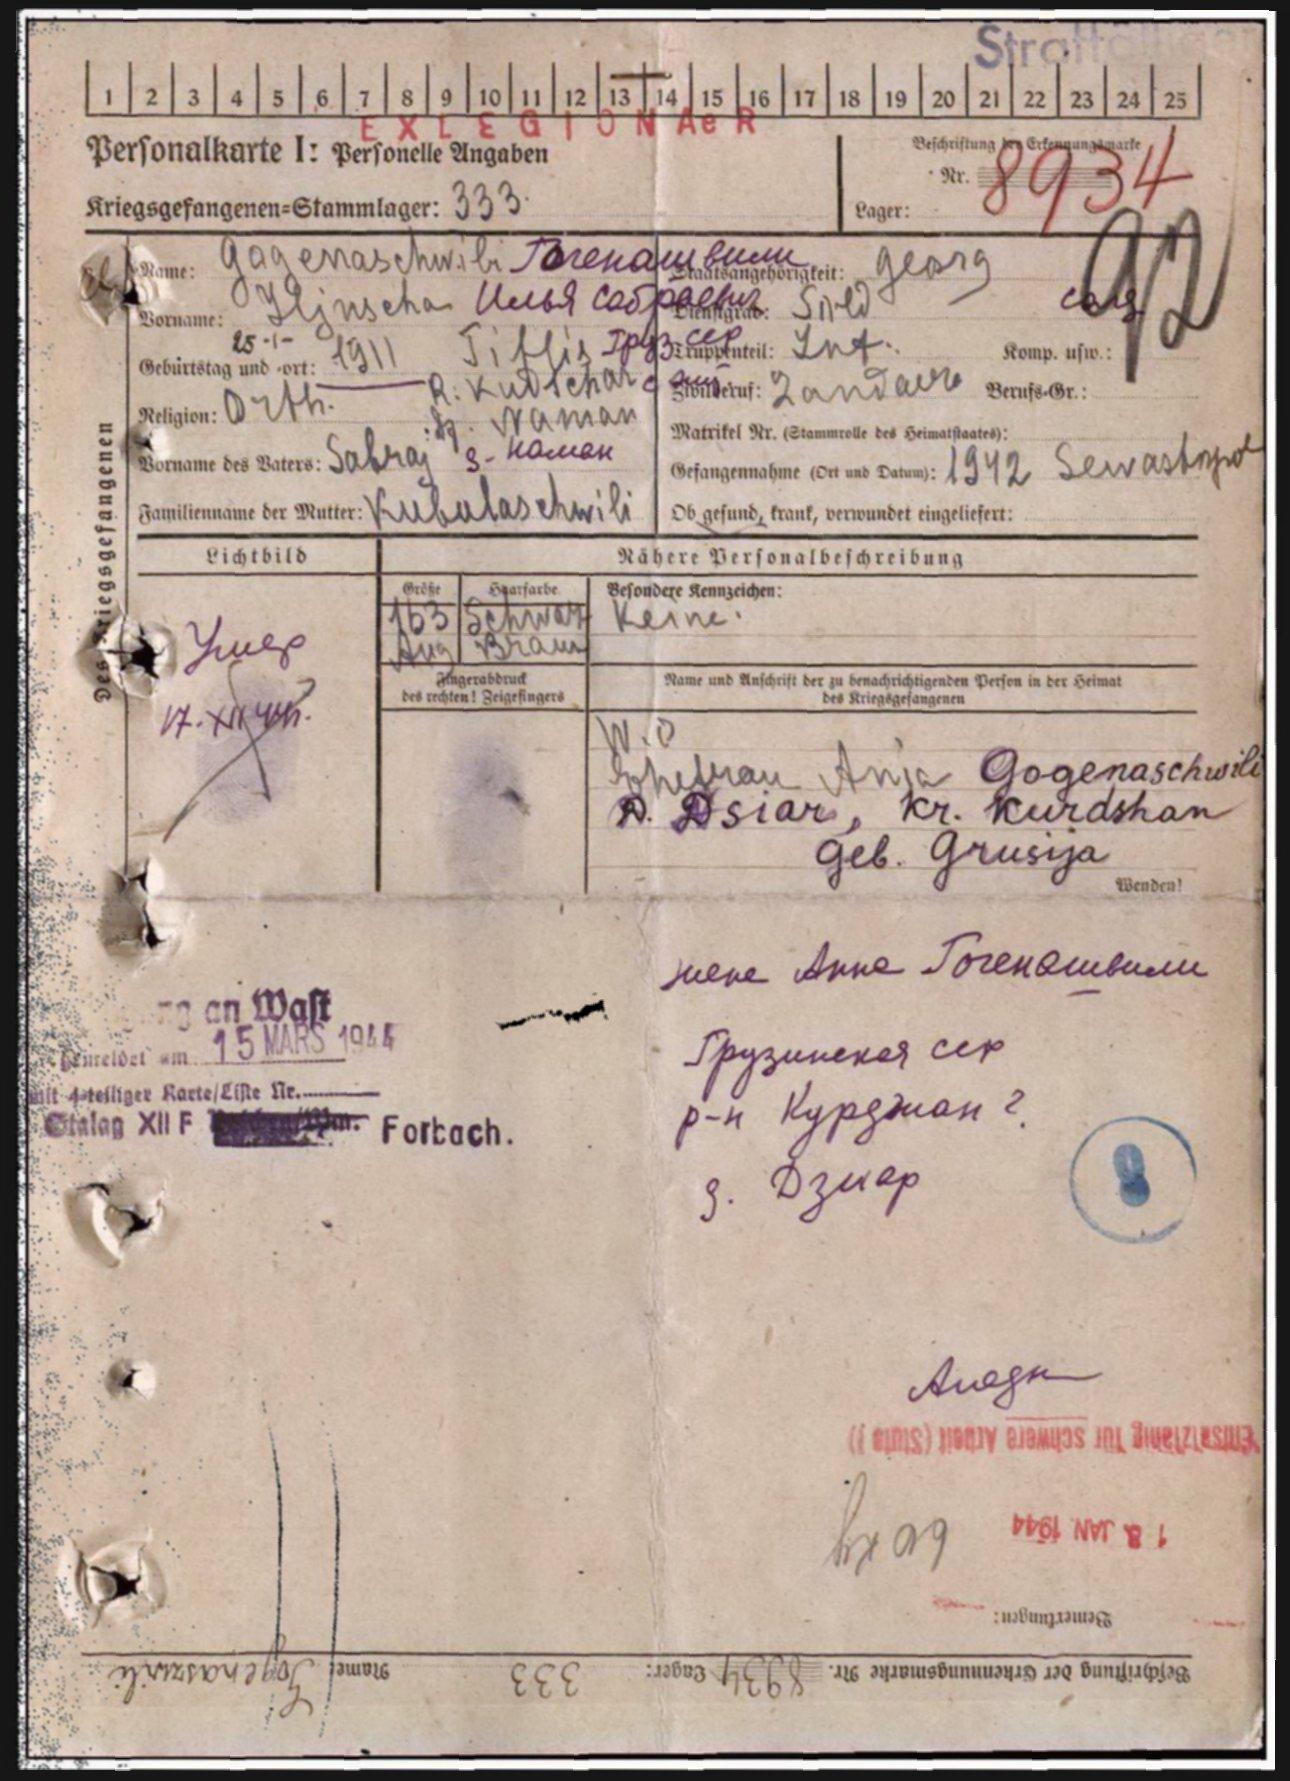 1 2 3 4 5 6 7 8 9 10 11 12 13 14 15 16 17 18 19 20 21 22 23 24 25
EXLEGIONAeR
Personalkarte I: Personelle Angaben
Beschriftung der Erkennungsmarke
Nr. 8934
Kriegsgefangenen=Stammlager: 333
Lager:
92
Des Kriegsgefangenen
Name: Gogenaschwili Гогенашвили
Staatsangehörigkeit: georg
Vorname: Iljuscha Илья Сабраевич
Dienstgrad: Sold солд
Geburtstag und -ort: 25-I- 1911 Tiflis Груз сср
Truppenteil: Inf. Komp. usw.:
Religion: Orth.
Zivilberuf: Berufs-Gr.:
Naman
Matrikel Nr. (Stammrolle des Heimatstaates):
Vorname des Vaters: Sabraj д- Наман
Gefangennahme (Ort und Datum): 1942 Sewastopol
Familienname der Mutter: Kubalaschwili
Ob gesund, krank, verwundet eingeliefert:
Lichtbild
Nähere Personalbeschreibung
Größe Haarfarbe Besondere Kennzeichen:
163 Schwarz Keine.
Aug Braun
Fingerabdruck
des rechten! Zeigefingers
Name und Anschrift der zu benachrichtigenden Person in der Heimat
des Kriegsgefangenen
Умер
17.XII 44г.
Ehefrau Anja Gogenaschwili
D. Dsiar, Kr. Kurdshan
Geb. Grusija
Wenden!
жене Анне Гогенашвили
Грузинская сср
р-н Курджан?
д. Дзиар
an Wast
gemeldet am 15 MARS 1944
mit 4-teiliger Karte/Liste Nr.
Stalag XII F Forbach.
8
Einsatzfähig für schwere Arbeit (Stufe I)
18. JAN 1944
Bemerkungen:
Beschriftung der Erkennungsmarke Nr. 8934 Lager: 333 Name: Gogenaszwili